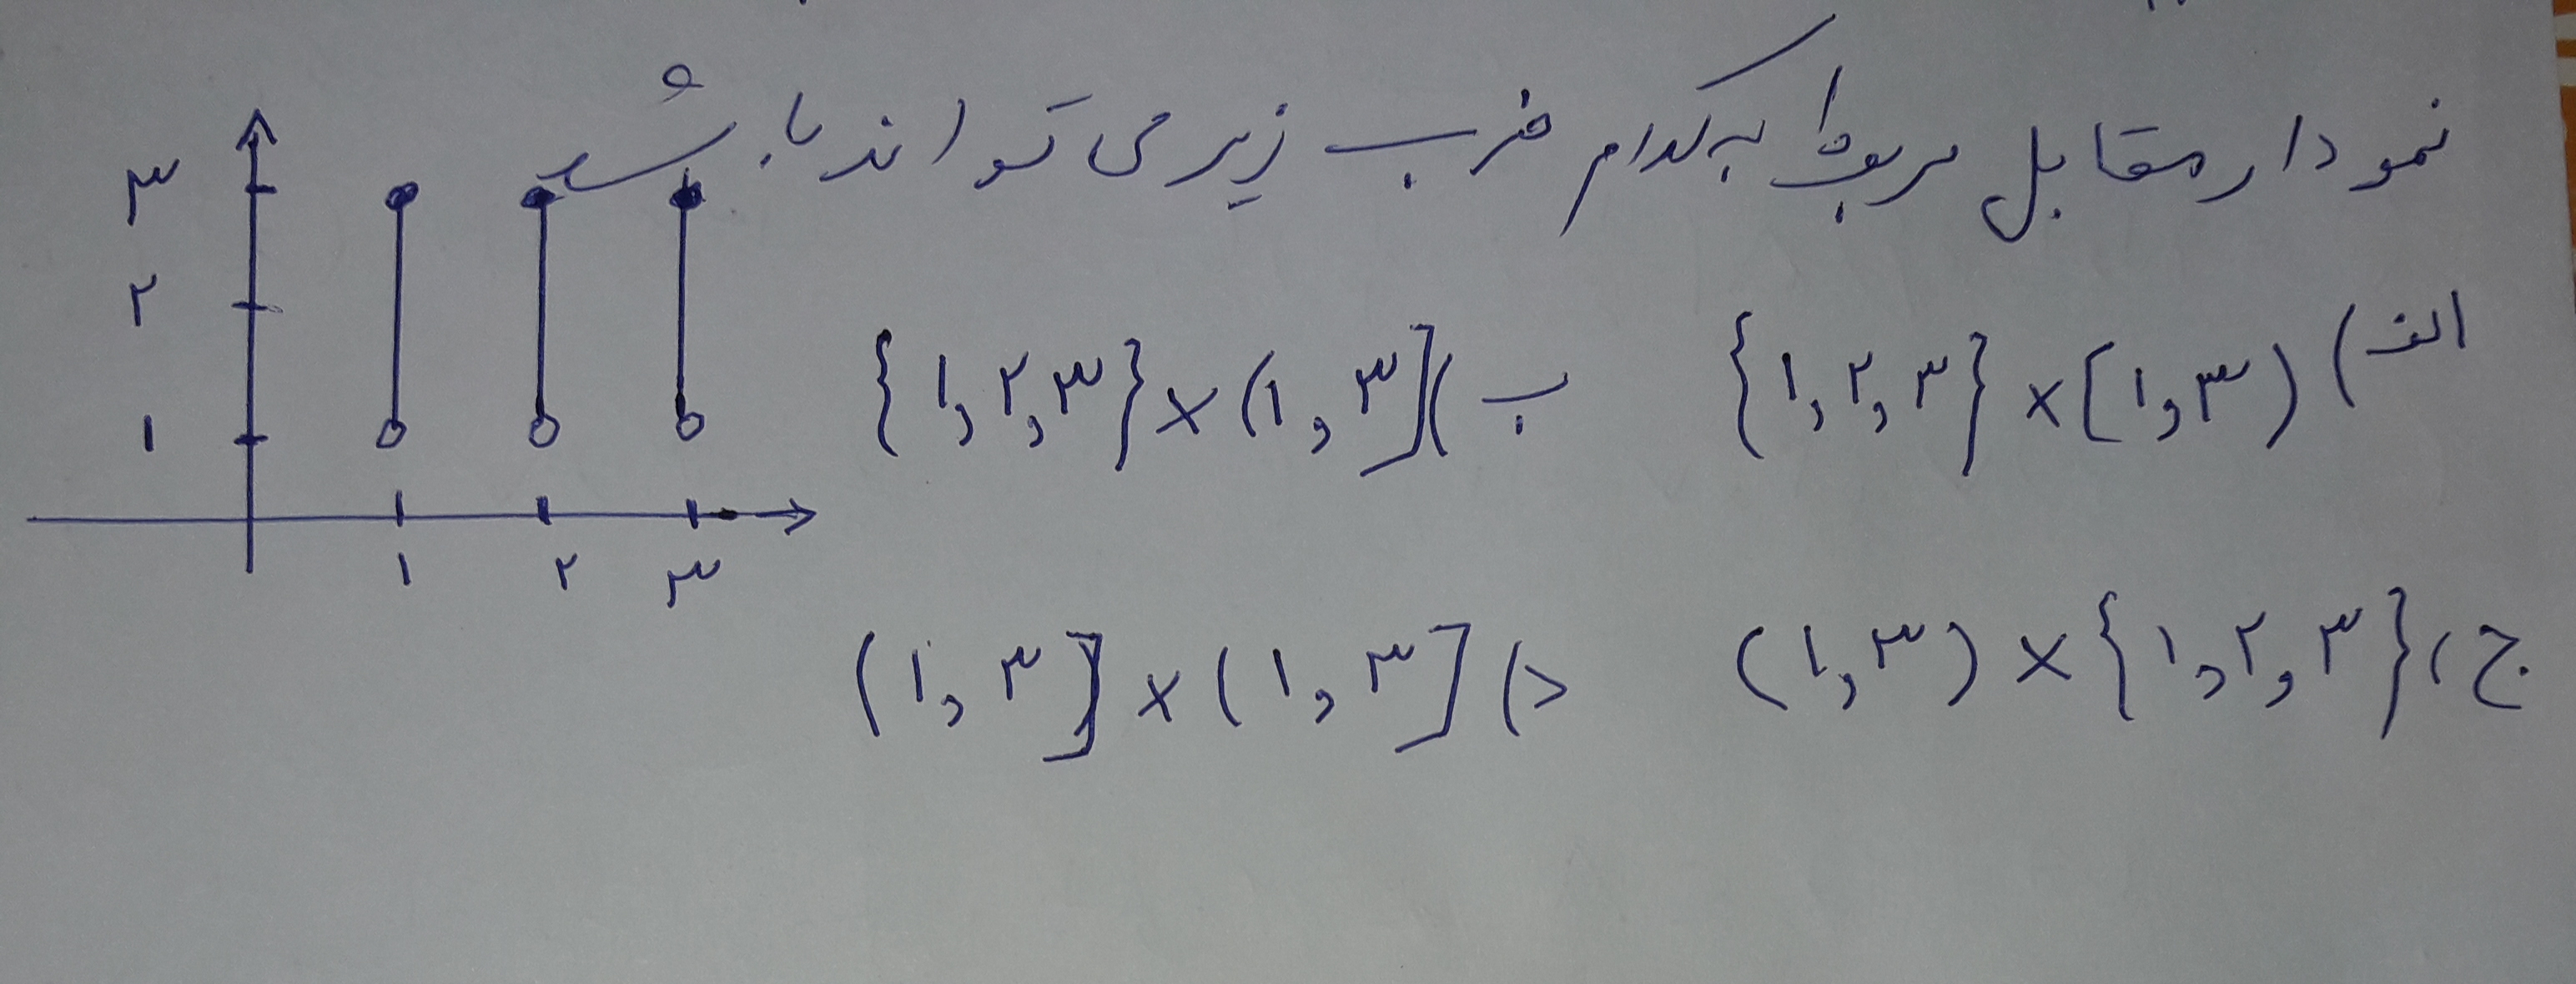 نمودار مقابل مربوط به کدام ضرب زیر می تواند باشد؟
الف) {۱,۲,۳} × [۱,۳)
ب) {۱,۲,۳} × (۱,۳]
ج) (۱,۳) × {۱,۲,۳}
د) (۱,۳] × (۱,۳]
۳
۲
۱
۱ ۲ ۳